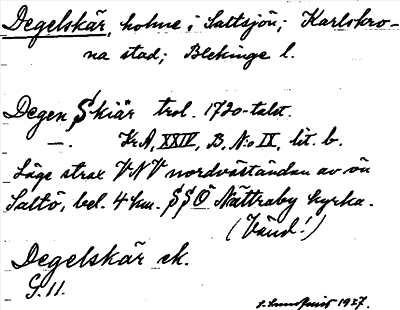 Degelskär, holme i Saltsjön; Karlskro-
na stad; Blekinge l.
Degen Skiär trol. 1720-talet.
—. Kr.A, XXIV, B, N:o IX, lit. b.
Läge strax VNV nordvästände av ön
Saltö, bel. 4 km. SSÖ Nättraby kyrka.
(Vänd!)
Degelskär ek.
G. 11.
1927.